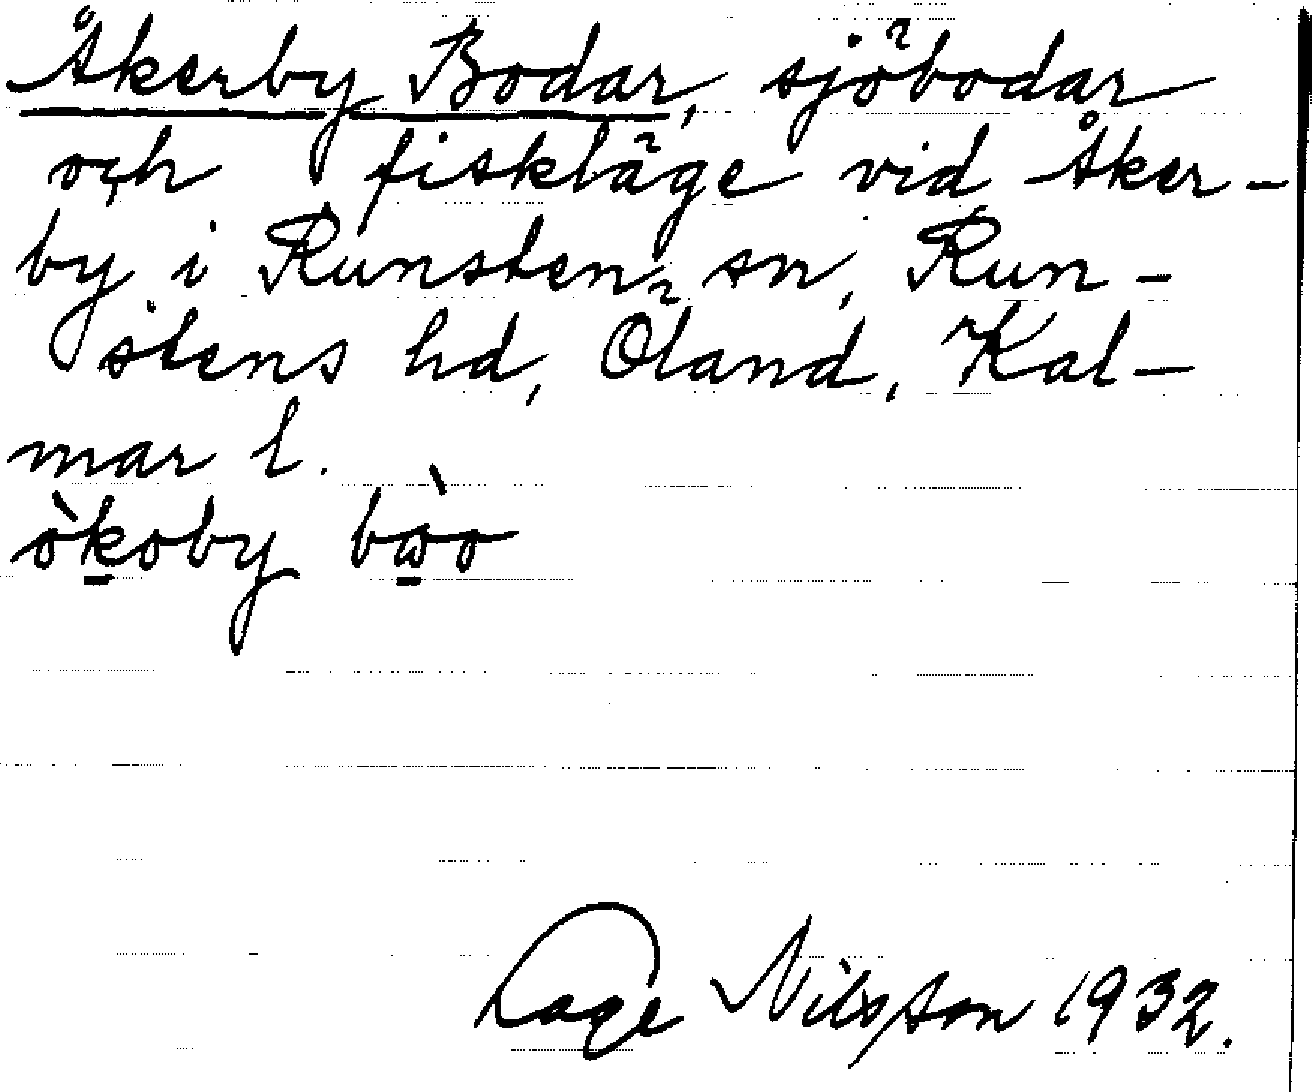 Åkerby Bodar, sjöbodar
och fiskläge vid Åker-
by i Runsten sn, Run-
stens hd, Öland, Kal-
mar l.
òkoby bòo
Lage Nilsson 1932.